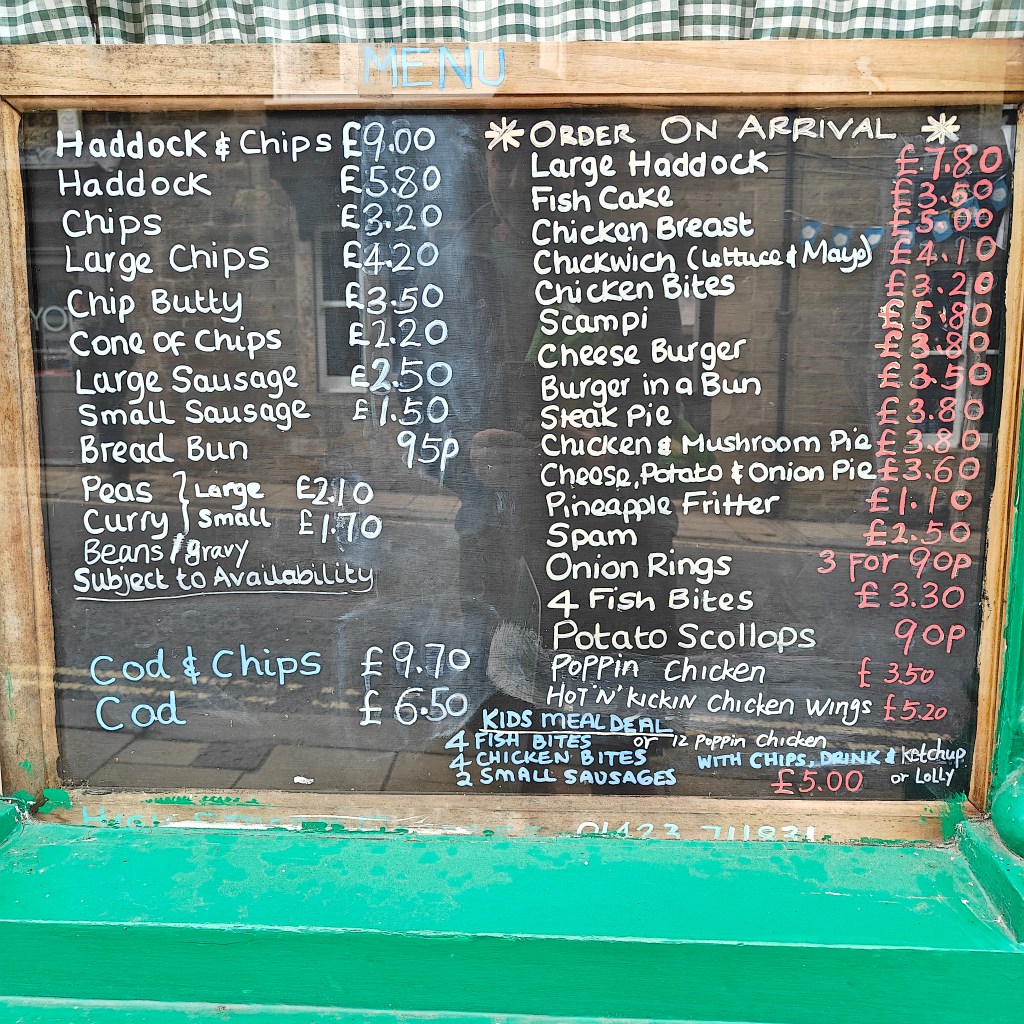 MENU
Haddock & Chips £9.00
Haddock £5.80
Chips £3.20
Large Chips £4.20
Chip Butty £3.50
Cone of Chips £2.20
Large Sausage £2.50
Small Sausage £1.50
Bread Bun 95p
Peas } Large £2.10
Curry } Small £1.70
Beans/gravy
Subject to Availability
Cod & Chips £9.70
Cod £6.50
* ORDER ON ARRIVAL *
Large Haddock £7.80
Fish Cake £3.50
Chicken Breast £5.00
Chickwich (Lettuce & Mayo) £4.10
Chicken Bites £3.20
Scampi £5.80
Cheese Burger £3.80
Burger in a Bun £3.50
Steak Pie £3.80
Chicken & Mushroom Pie £3.80
Cheese, Potato & Onion Pie £3.60
Pineapple Fritter £1.10
Spam £2.50
Onion Rings 3 for 90p
4 Fish Bites £3.30
Potato Scollops 90p
Poppin Chicken £3.50
HOT 'N' KICKIN Chicken Wings £5.20
KIDS MEAL DEAL
4 FISH BITES or 12 Poppin Chicken
4 CHICKEN BITES WITH CHIPS, DRINK & Ketchup
2 SMALL SAUSAGES £5.00 or LOLLY
01423 711831